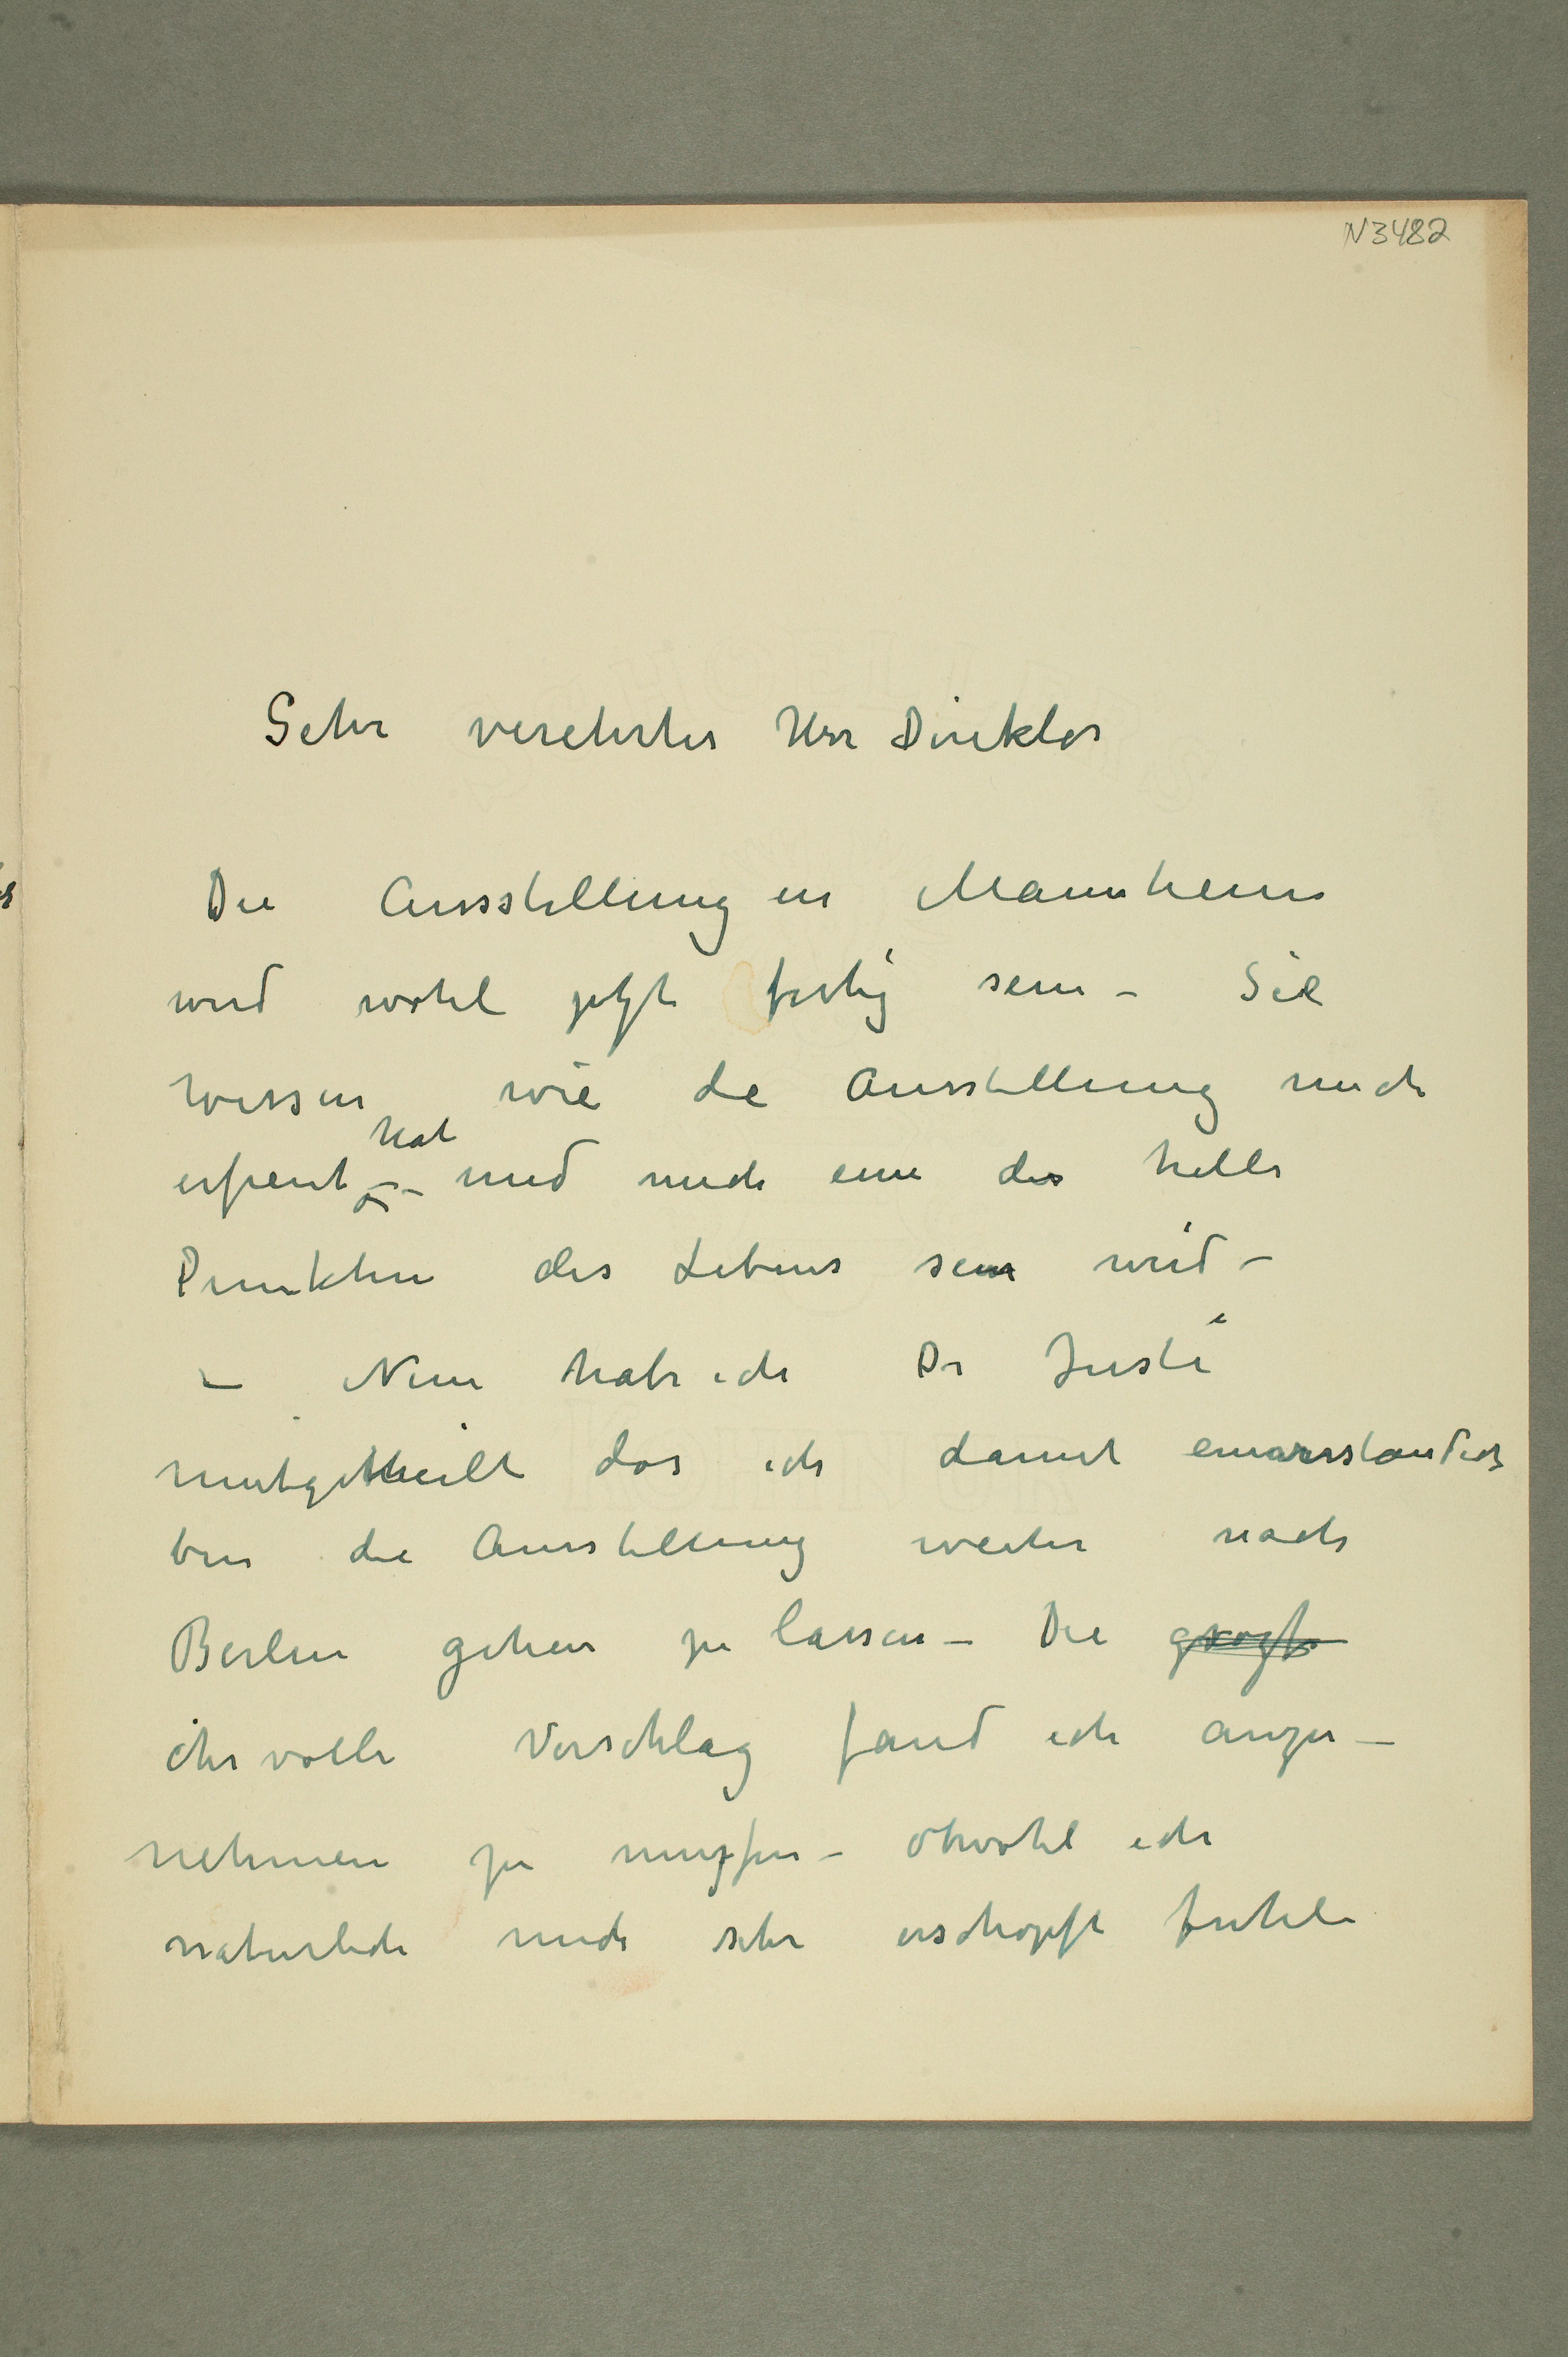 N 3482
Sehr verehrter Herr Direktor
Die Ausstellung in Mannheim
wird wohl jetzt fertig sein – Sie
wissen wie die Ausstellung mich
hat
erfreut – und mich eine der helle
Punkten des Lebens sein wird –
– Nun habe ich Dr Justi
mitgetheilt das ich damit einverstanden
bin die Ausstellung weiter nach
Berlin gehen zu lassen – Die
ehrvolle Vorschlag fand ich anzu–
nehmen zu mußen – obwohl ich
naturlich mich sehr erschopft fuhle